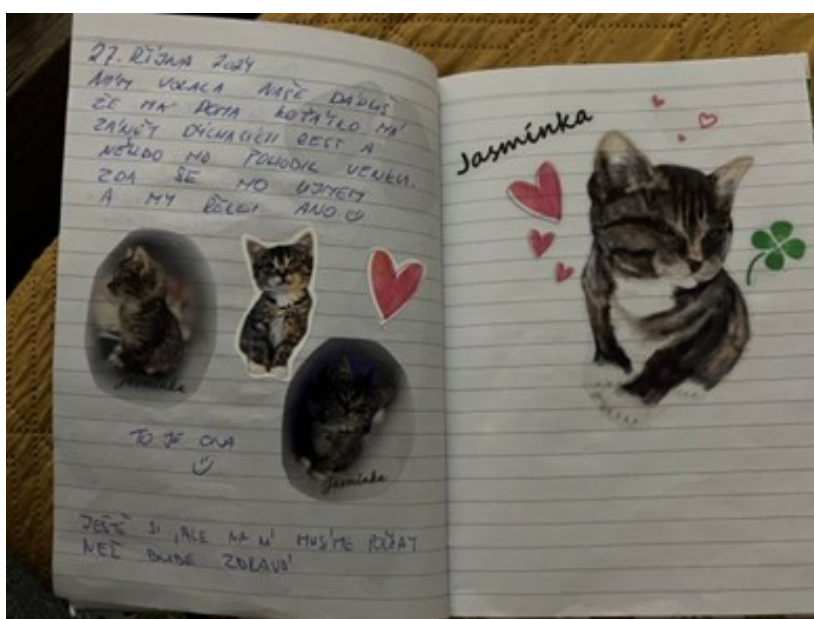 27. ŘÍJNA 2024
NÁM VOLALA NAŠE
ŽE MÁ DOMA KOŤÁTKO MÁ
ZÁNĚT DÝCHACÍCH CEST A
NĚKDO HO POHODIL VENKU.
ZDA SE HO UJMEM
A MY ŘEKLI ANO
Jasmínka
Jasmínka
TO JE ONA
JEŠTĚ SI ALE NA NÍ MUSÍME POČKAT
NEŽ BUDE ZDRAVÁ
Jasmínka